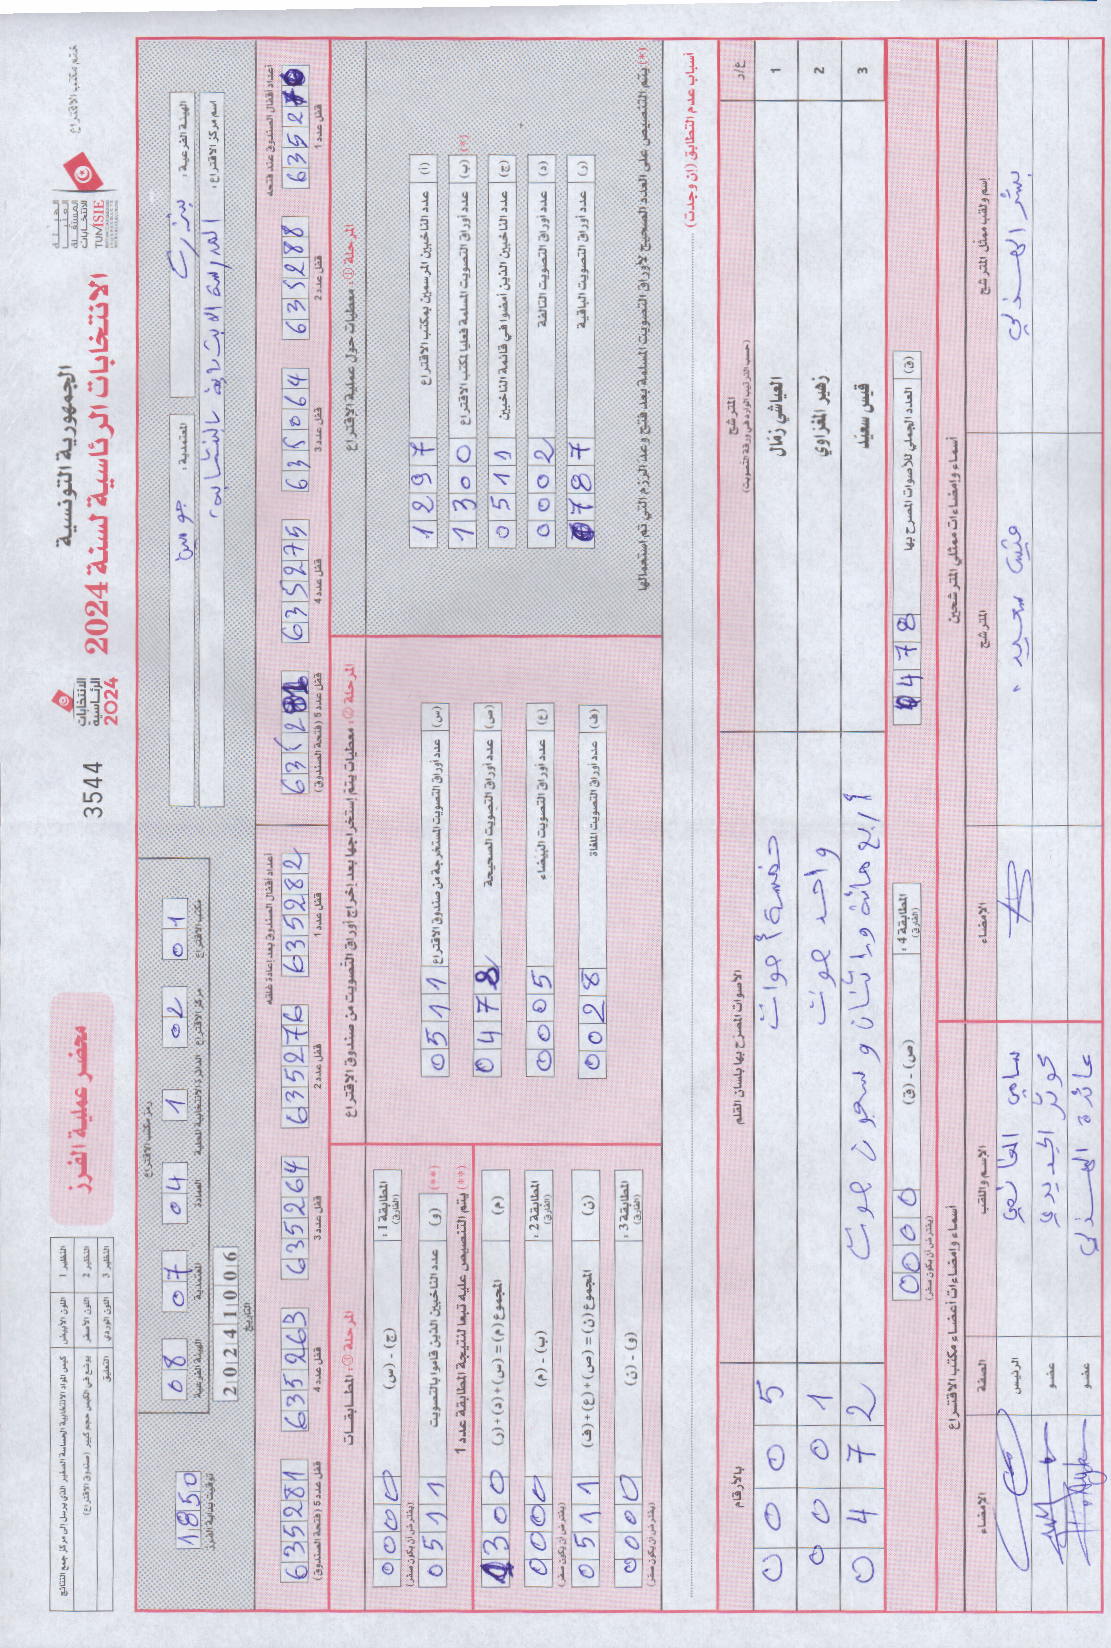 الجمهورية التونسية
الانتخابات الرئاسية لسنة 2024
الهيئة العليا المستقلة للانتخابات
TUNISIE
ختم مكتب الاقتراع
الانتخابات الرئاسية 2024
3544
محضر عملية الفرز
النظير 1 اللون الأبيض كيس المواد الانتخابية الحساسة الصغير الذي يرسل إلى مركز جمع النتائج
النظير 2 اللون الأصفر يوضع في الكيس حجم كبير (صندوق الاقتراع)
النظير 3 اللون الوردي التعليق
الهيئة الفرعية : بنزرت
المعتمدية : جومين
اسم مركز الاقتراع : المدرسة الابتدائية
رمز مكتب الاقتراع
08 07 04 1 02 01
الهيئة الفرعية المعتمدية العمادة الدائرة الانتخابية المحلية مركز الاقتراع مكتب الاقتراع
20241006
التاريخ
1850
توقيت بداية الفرز
أعداد أقفال الصندوق عند فتحه
635288 635064 635275
قفل عدد 1 قفل عدد 2 قفل عدد 3 قفل عدد 4 قفل عدد 5 (فتحة الصندوق)
أعداد أقفال الصندوق بعد إعادة غلقه
635282 635276 635264 635263 635281
قفل عدد 1 قفل عدد 2 قفل عدد 3 قفل عدد 4 قفل عدد 5 (فتحة الصندوق)
المرحلة 1 : معطيات حول عملية الاقتراع
(أ) عدد الناخبين المرسمين بمكتب الاقتراع 1297
(ب) عدد أوراق التصويت المسلمة فعليا لمكتب الاقتراع (*) 1300
(ج) عدد الناخبين الذين أمضوا في قائمة الناخبين 0511
(د) عدد أوراق التصويت التالفة 0002
(ر) عدد أوراق التصويت الباقية 0787
(*) يتم التنصيص على العدد الصحيح لأوراق التصويت المسلمة بعد فتح وعد الرزم التي تم استعمالها
المرحلة 2 : معطيات يتم إستخراجها بعد إخراج أوراق التصويت من صندوق الاقتراع
(س) عدد أوراق التصويت المستخرجة من صندوق الاقتراع 0511
(ص) عدد أوراق التصويت الصحيحة 0478
(ع) عدد أوراق التصويت البيضاء 0005
(ف) عدد أوراق التصويت الملغاة 0028
المرحلة 3 : المطابقات
المطابقة 1 : (الفارق) (ج) - (س) 0000 (يفترض أن يكون صفر)
(**) (و) عدد الناخبين الذين قاموا بالتصويت 0511
(**) يتم التنصيص عليه تبعا لنتيجة المطابقة عدد 1
(م) المجموع (م) = (س) + (د) + (ر) 1300
المطابقة 2 : (الفارق) (ب) - (م) 0000 (يفترض أن يكون صفر)
(ن) المجموع (ن) = (ص) + (ع) + (ف) 0511
المطابقة 3 : (الفارق) (و) - (ن) 0000 (يفترض أن يكون صفر)
أسباب عدم التطابق (إن وجدت)
ع/ر المترشح (حسب الترتيب الوارد في ورقة التصويت) الأصوات المصرح بها بلسان القلم بالأرقام
1 العياشي زمّال خمسة أصوات 0005
2 زهير المغزاوي واحد صوت 0001
3 قيس سعيّد أربع مائة واثنان وسبعون صوت 0472
(ق) العدد الجملي للأصوات المصرح بها 0478
المطابقة 4 : (الفارق) (ص) - (ق) 0000 (يفترض أن يكون صفر)
أسماء وإمضاءات ممثلي المترشحين
إسم ولقب ممثل المترشح المترشح الامضاء
قيس سعيد
أسماء وإمضاءات أعضاء مكتب الاقتراع
الإسم واللقب الصفة الإمضاء
سامي الرئيس
كوثر الحديدي عضو
عائدة عضو